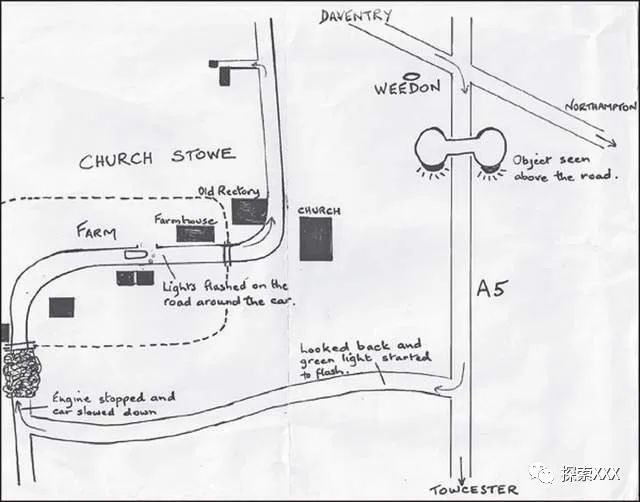 DAVENTRY
WEEDON
NORTHAMPTON
Object seen
above the road.
CHURCH STOWE
Old Rectory
CHURCH
Farmhouse
FARM
Lights flashed on the
road around the car.
A5
Looked back and
green light started
to flash.
Engine stopped and
car slowed down
TOWCESTER
探索XXX